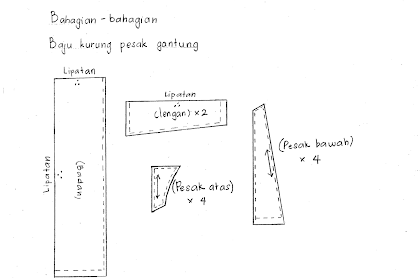 Bahagian - bahagian
Baju kurung pesak gantung
Lipatan
Lipatan
(Badan)
Lipatan
(lengan) x 2
(Pesak atas)
x 4
(Pesak bawah)
x 4